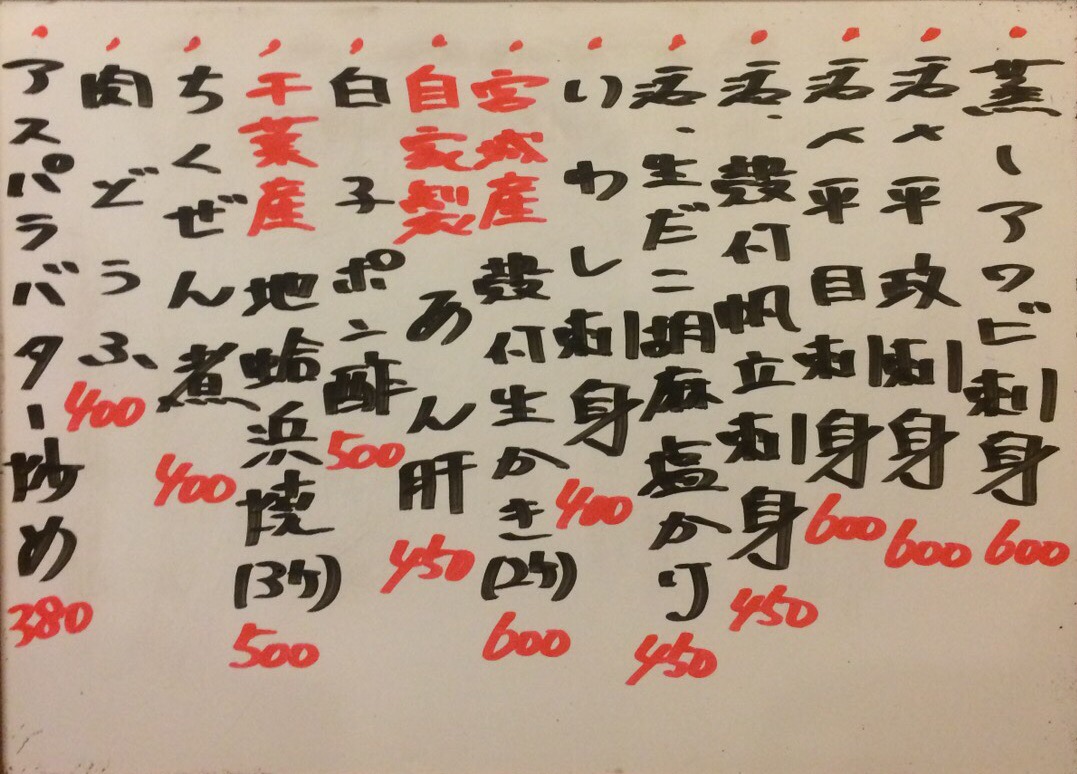 ・蒸しアワビ刺身 600
・活〆平政刺身 600
・活〆平目刺身 600
・活・殻付帆立刺身 450
・活・生だこ胡麻塩かけ 450
・いわし刺身 400
・宮城産 殻付生かき(2ケ) 600
・自家製 あん肝 450
・白子ポン酢 500
・千葉産 地蛤浜焼(3ケ) 500
・ちくぜん煮 400
・肉どうふ 400
・アスパラバター炒め 380